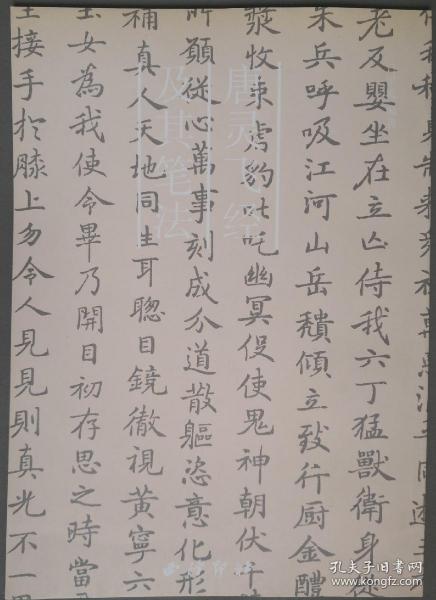 老反嬰坐在立亡侍我六丁猛獸衛身從
朱兵呼吸江河山岳穨傾立致行厨金醴
漿收束虎豹叱吒幽冥役使鬼神朝伏千
所願從心萬事刻成分道散軀恣意化形
補真人天地同生耳聰目鏡徹視黄寧六
玉女為我使令畢乃開目初存思之時當
接手於膝上勿令人見見則真光不一
唐灵飞经
及其笔法
孔夫子旧书网
www.kongfz.com